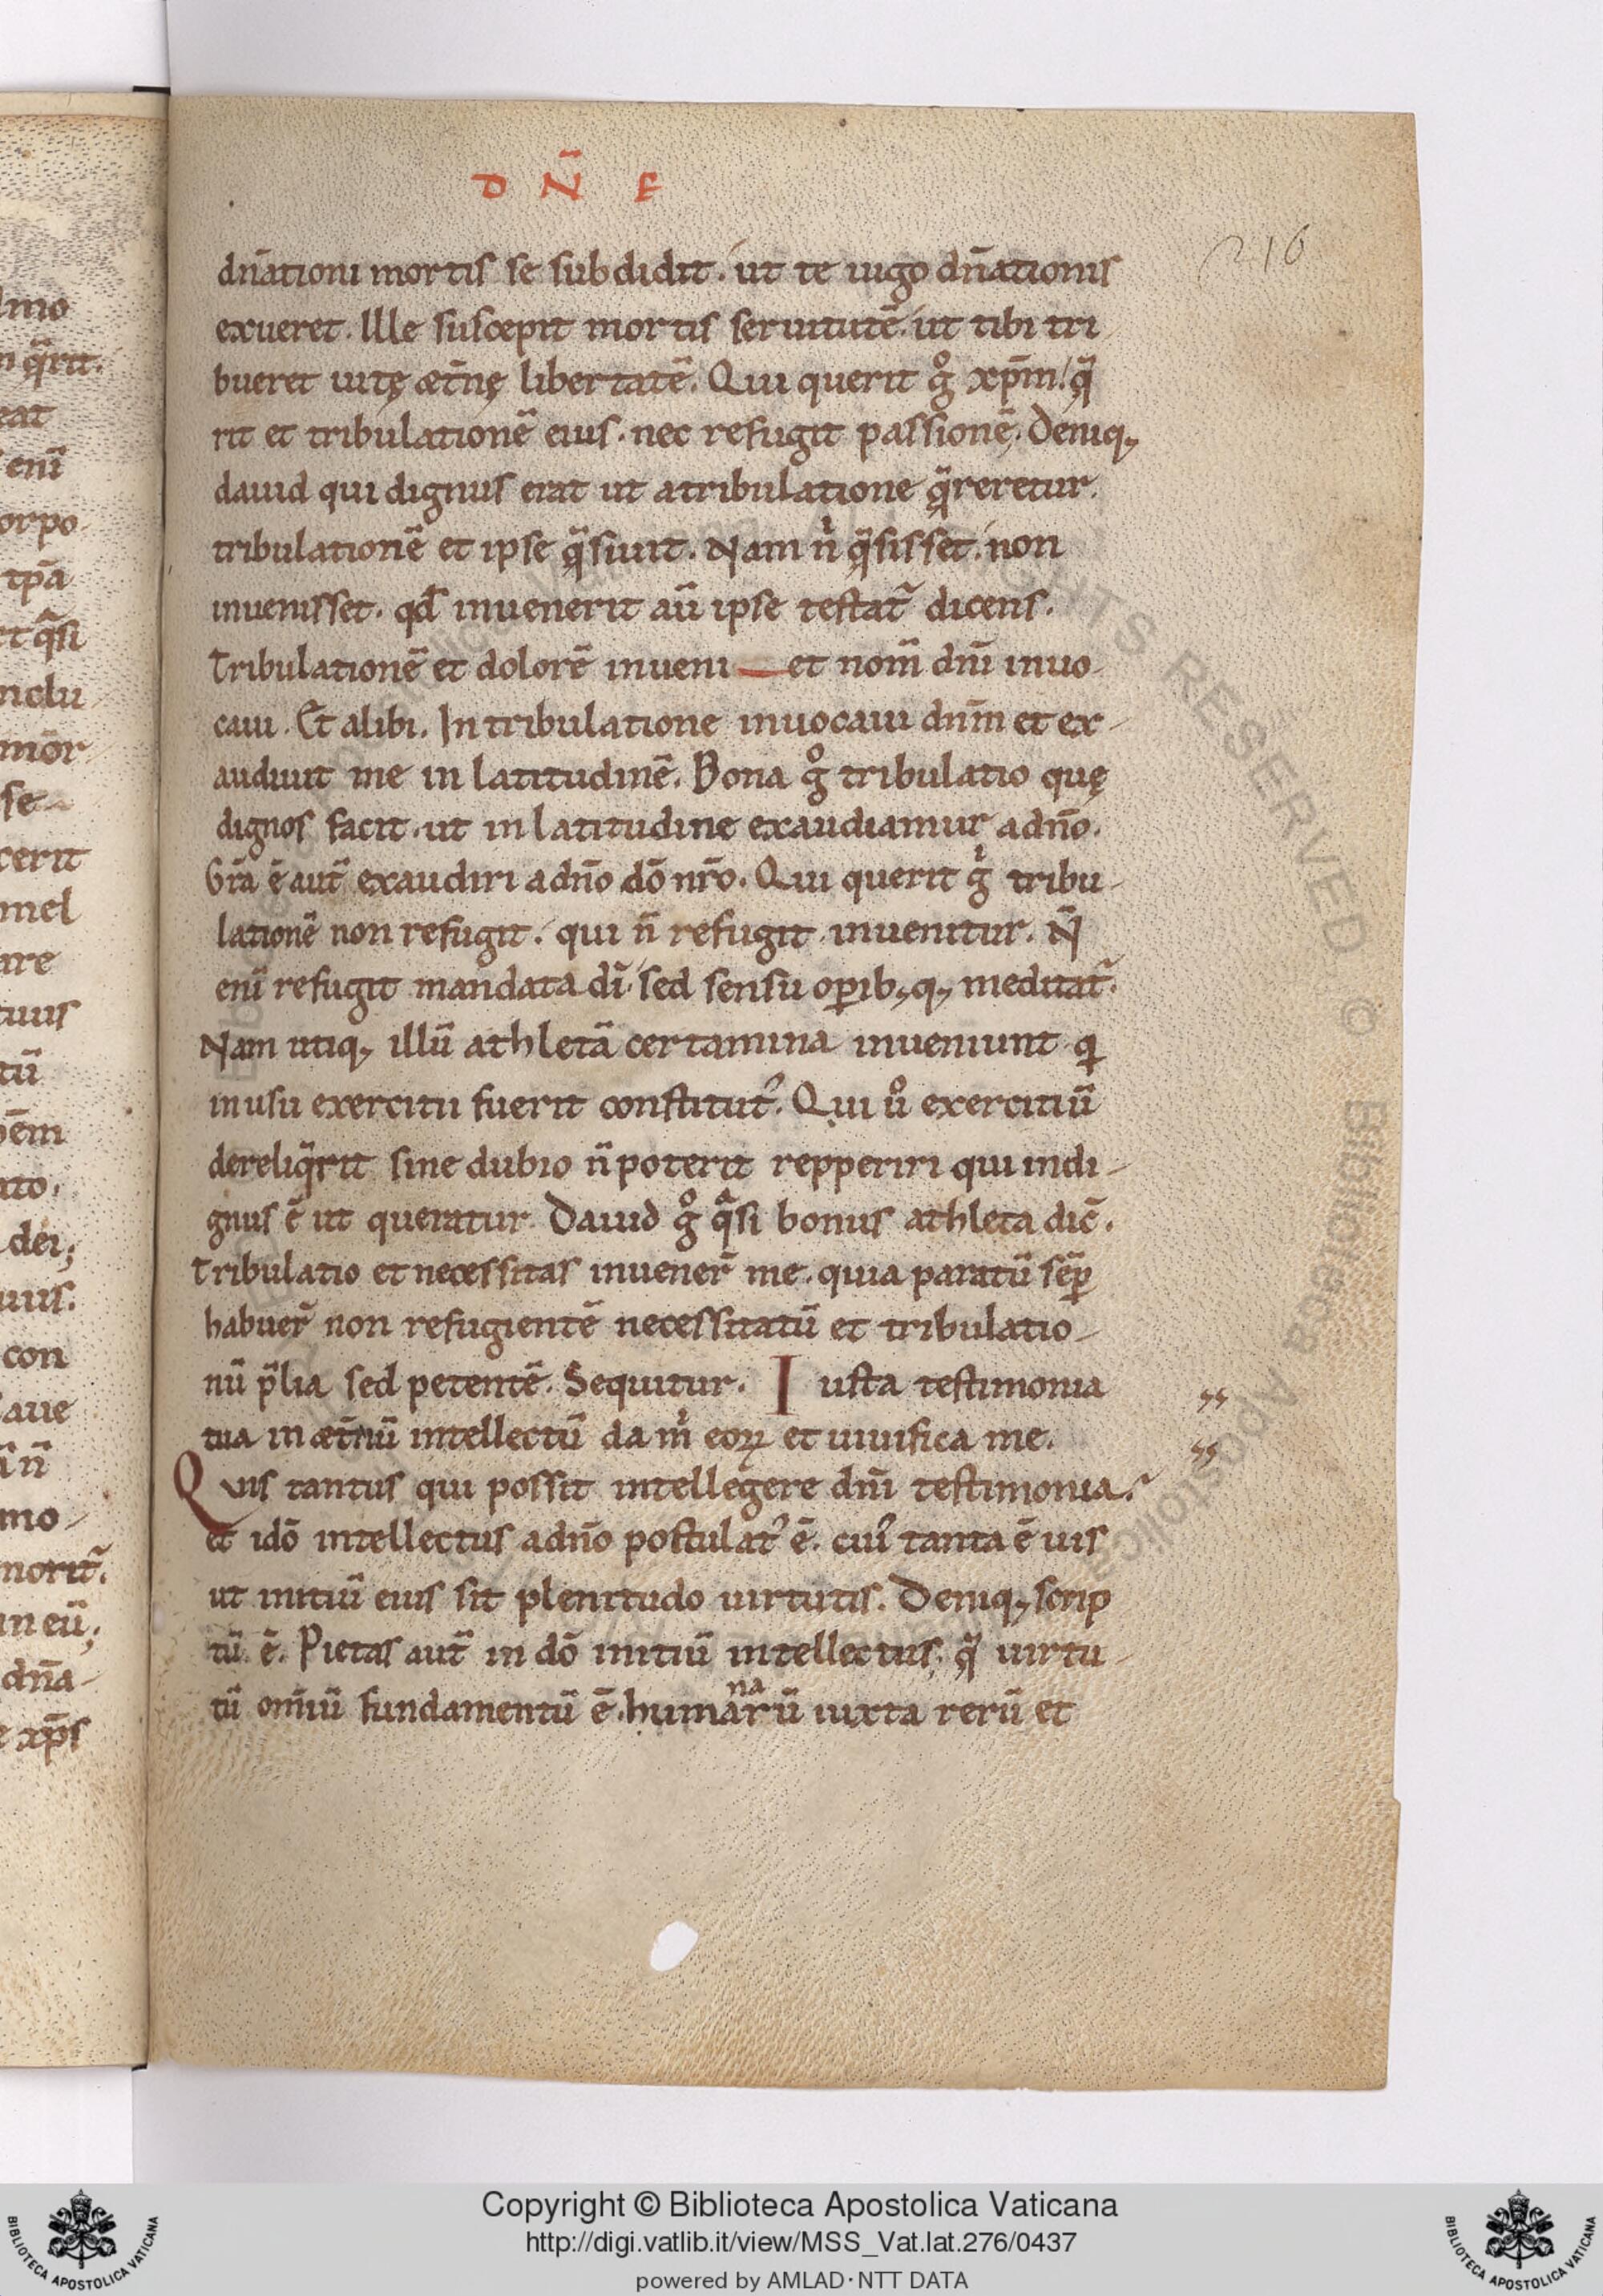 D N̄ F
216
dn̄ationi mortis se subdidit. ut te iugo dn̄ationis
exueret. Ille suscepit mortis seruitutē. ut tibi tri
bueret uitę æt̄nę libertatē. Qui querit gͦ xp̄m. q̄
rit et tribulationē eius. nec refugit passionē. Deniq;
dauid qui dignus erat ut atribulatione q̄reretur.
tribulationē et ipse q̄siuit. Nam nͥ q̄sisset. non
inuenisset. qd̄ inuenerit aū ipse testat̄ dicens.
Tribulationē et dolorē inueni et nom̄ dn̄i inuo-
caui. Et alibi. In tribulatione inuocaui dn̄m et ex-
audiuit me in latitudinē. Bona gͦ tribulatio quę
dignos facit. ut in latitudine exaudiamur adn̄o.
Gr̄a ē aut̄ exaudiri adn̄o dō nr̄o. Qui querit gͥ tribu-
lationē non refugit. qui n̄ refugit inuenitur. N̄
enī refugit mandata dī. sed sensu opib;q; meditat̄.
Nam utiq; illū athletā certamina inueniunt q
inusu exercitii fuerit constitut᾿. Qui uͦ exercitiū
dereliq̄rit sine dubio n̄ poterit repperiri qui indi-
gnus ē ut queratur. Dauid gͦ qͣsi bonus athleta dic̄.
Tribulatio et necessitas inuener̄ me. quia paratū sēp
habuer̄ non refugientē necessitatū et tribulatio-
nū p̄lia sed petentē. Sequitur. Iusta testimonia
tua in æt̄nū intellectū da mͥ eoꝝ et uiuifica me.
Quis tantus qui possit intellegere dn̄i testimonia.
et idō intellectus adn̄o postulat᾿ ē. cui᾿ tanta ē uis
ut initiū eius sit plenitudo uirtutis. Deniq; scrip
tū ē. Pietas aut̄ in dō initiū intellectus. q̄ uirtu-
na
tū om̄iū fundamentū ē. humarū iuxta rerū et
Copyright © Biblioteca Apostolica Vaticana
http://digi.vatlib.it/view/MSS_Vat.lat.276/0437
powered by AMLAD·NTT DATA
BIBLIOTECA APOSTOLICA VATICANA
BIBLIOTECA APOSTOLICA VATICANA